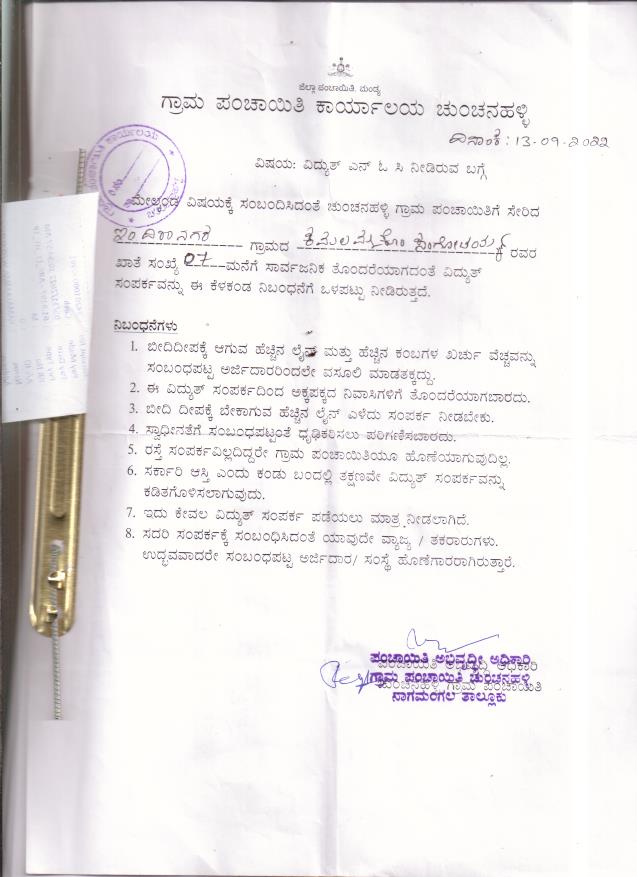 ಜಿಲ್ಲಾ ಪಂಚಾಯಿತಿ, ಮಂಡ್ಯ
ಗ್ರಾಮ ಪಂಚಾಯಿತಿ ಕಾರ್ಯಾಲಯ ಚುಂಚನಹಳ್ಳಿ
ದಿನಾಂಕ : 13-09-2022
ವಿಷಯ: ವಿದ್ಯುತ್ ಎನ್ ಓ ಸಿ ನೀಡಿರುವ ಬಗ್ಗೆ
ಮೇಲ್ಕಂಡ ವಿಷಯಕ್ಕೆ ಸಂಬಂದಿಸಿದಂತೆ ಚುಂಚನಹಳ್ಳಿ ಗ್ರಾಮ ಪಂಚಾಯಿತಿಗೆ ಸೇರಿದ
ಇಂದಿರಾನಗರ ಗ್ರಾಮದ ಕಮಲಮ್ಮ ಕೋಂ ರವರ
ಖಾತೆ ಸಂಖ್ಯೆ 07 ಮನೆಗೆ ಸಾರ್ವಜನಿಕ ತೊಂದರೆಯಾಗದಂತೆ ವಿದ್ಯುತ್
ಸಂಪರ್ಕವನ್ನು ಈ ಕೆಳಕಂಡ ನಿಬಂಧನೆಗೆ ಒಳಪಟ್ಟು ನೀಡಿರುತ್ತದೆ.
ನಿಬಂಧನೆಗಳು
1. ಬೀದಿದೀಪಕ್ಕೆ ಆಗುವ ಹೆಚ್ಚಿನ ಲೈನ್ ಮತ್ತು ಹೆಚ್ಚಿನ ಕಂಬಗಳ ಖರ್ಚು ವೆಚ್ಚವನ್ನು
ಸಂಬಂಧಪಟ್ಟ ಅರ್ಜಿದಾರರಿಂದಲೇ ವಸೂಲಿ ಮಾಡತಕ್ಕದ್ದು.
2. ಈ ವಿದ್ಯುತ್ ಸಂಪರ್ಕದಿಂದ ಅಕ್ಕಪಕ್ಕದ ನಿವಾಸಿಗಳಿಗೆ ತೊಂದರೆಯಾಗಬಾರದು.
3. ಬೀದಿ ದೀಪಕ್ಕೆ ಬೇಕಾಗುವ ಹೆಚ್ಚಿನ ಲೈನ್ ಎಳೆದು ಸಂಪರ್ಕ ನೀಡಬೇಕು.
4. ಸ್ವಾಧೀನತೆಗೆ ಸಂಬಂಧಪಟ್ಟಂತೆ ಧೃಢಿಕರಿಸಲು ಪರಿಗಣಿಸಬಾರದು.
5. ರಸ್ತೆ ಸಂಪರ್ಕವಿಲ್ಲದಿದ್ದರೇ ಗ್ರಾಮ ಪಂಚಾಯಿತಿಯೂ ಹೊಣೆಯಾಗುವುದಿಲ್ಲ.
6. ಸರ್ಕಾರಿ ಆಸ್ತಿ ಎಂದು ಕಂಡು ಬಂದಲ್ಲಿ ತಕ್ಷಣವೇ ವಿದ್ಯುತ್ ಸಂಪರ್ಕವನ್ನು
ಕಡಿತಗೊಳಿಸಲಾಗುವುದು.
7. ಇದು ಕೇವಲ ವಿದ್ಯುತ್ ಸಂಪರ್ಕ ಪಡೆಯಲು ಮಾತ್ರ ನೀಡಲಾಗಿದೆ.
8. ಸದರಿ ಸಂಪರ್ಕಕ್ಕೆ ಸಂಬಂಧಿಸಿದಂತೆ ಯಾವುದೇ ವ್ಯಾಜ್ಯ / ತಕರಾರುಗಳು.
ಉದ್ಭವವಾದರೇ ಸಂಬಂಧಪಟ್ಟ ಅರ್ಜಿದಾರ/ ಸಂಸ್ಥೆ ಹೊಣೆಗಾರರಾಗಿರುತ್ತಾರೆ.
ಪಂಚಾಯಿತಿ ಅಭಿವೃದ್ಧಿ ಅಧಿಕಾರಿ
ಗ್ರಾಮ ಪಂಚಾಯಿತಿ ಚುಂಚನಹಳ್ಳಿ
ನಾಗಮಂಗಲ ತಾಲ್ಲೂಕು
ಪಂಚಾಯಿತಿ ಅಭಿವೃದ್ಧಿ ಅಧಿಕಾರಿ
ಚುಂಚನಹಳ್ಳಿ ಗ್ರಾಮ ಪಂಚಾಯಿತಿ